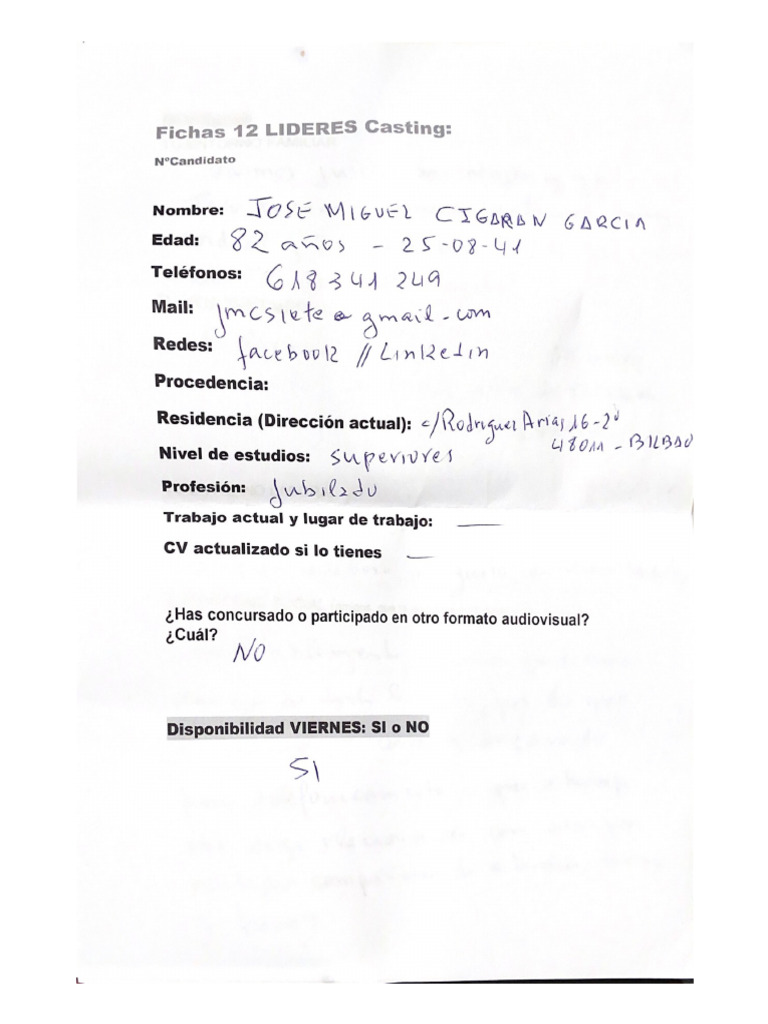 Fichas 12 LIDERES Casting:
NºCandidato
Nombre: JOSE MIGUEL CIGARAN GARCIA
Edad: 82 años - 25-08-41
Teléfonos: 618 341 249
Mail: jmcsiete@gmail.com
Redes: facebook // Linkedin
Procedencia:
Residencia (Dirección actual): c/Rodriguez Arias 16-2º
48011 - BILBAO
Nivel de estudios: superiores
Profesión: Jubilado
Trabajo actual y lugar de trabajo: —
CV actualizado si lo tienes —
¿Has concursado o participado en otro formato audiovisual?
¿Cuál?
NO
Disponibilidad VIERNES: SI o NO
SI